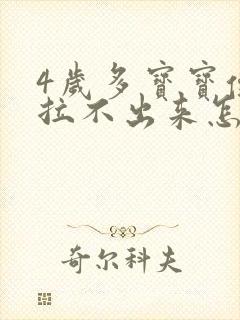 4歲多寶寶
拉不出来怎
奇尔科夫